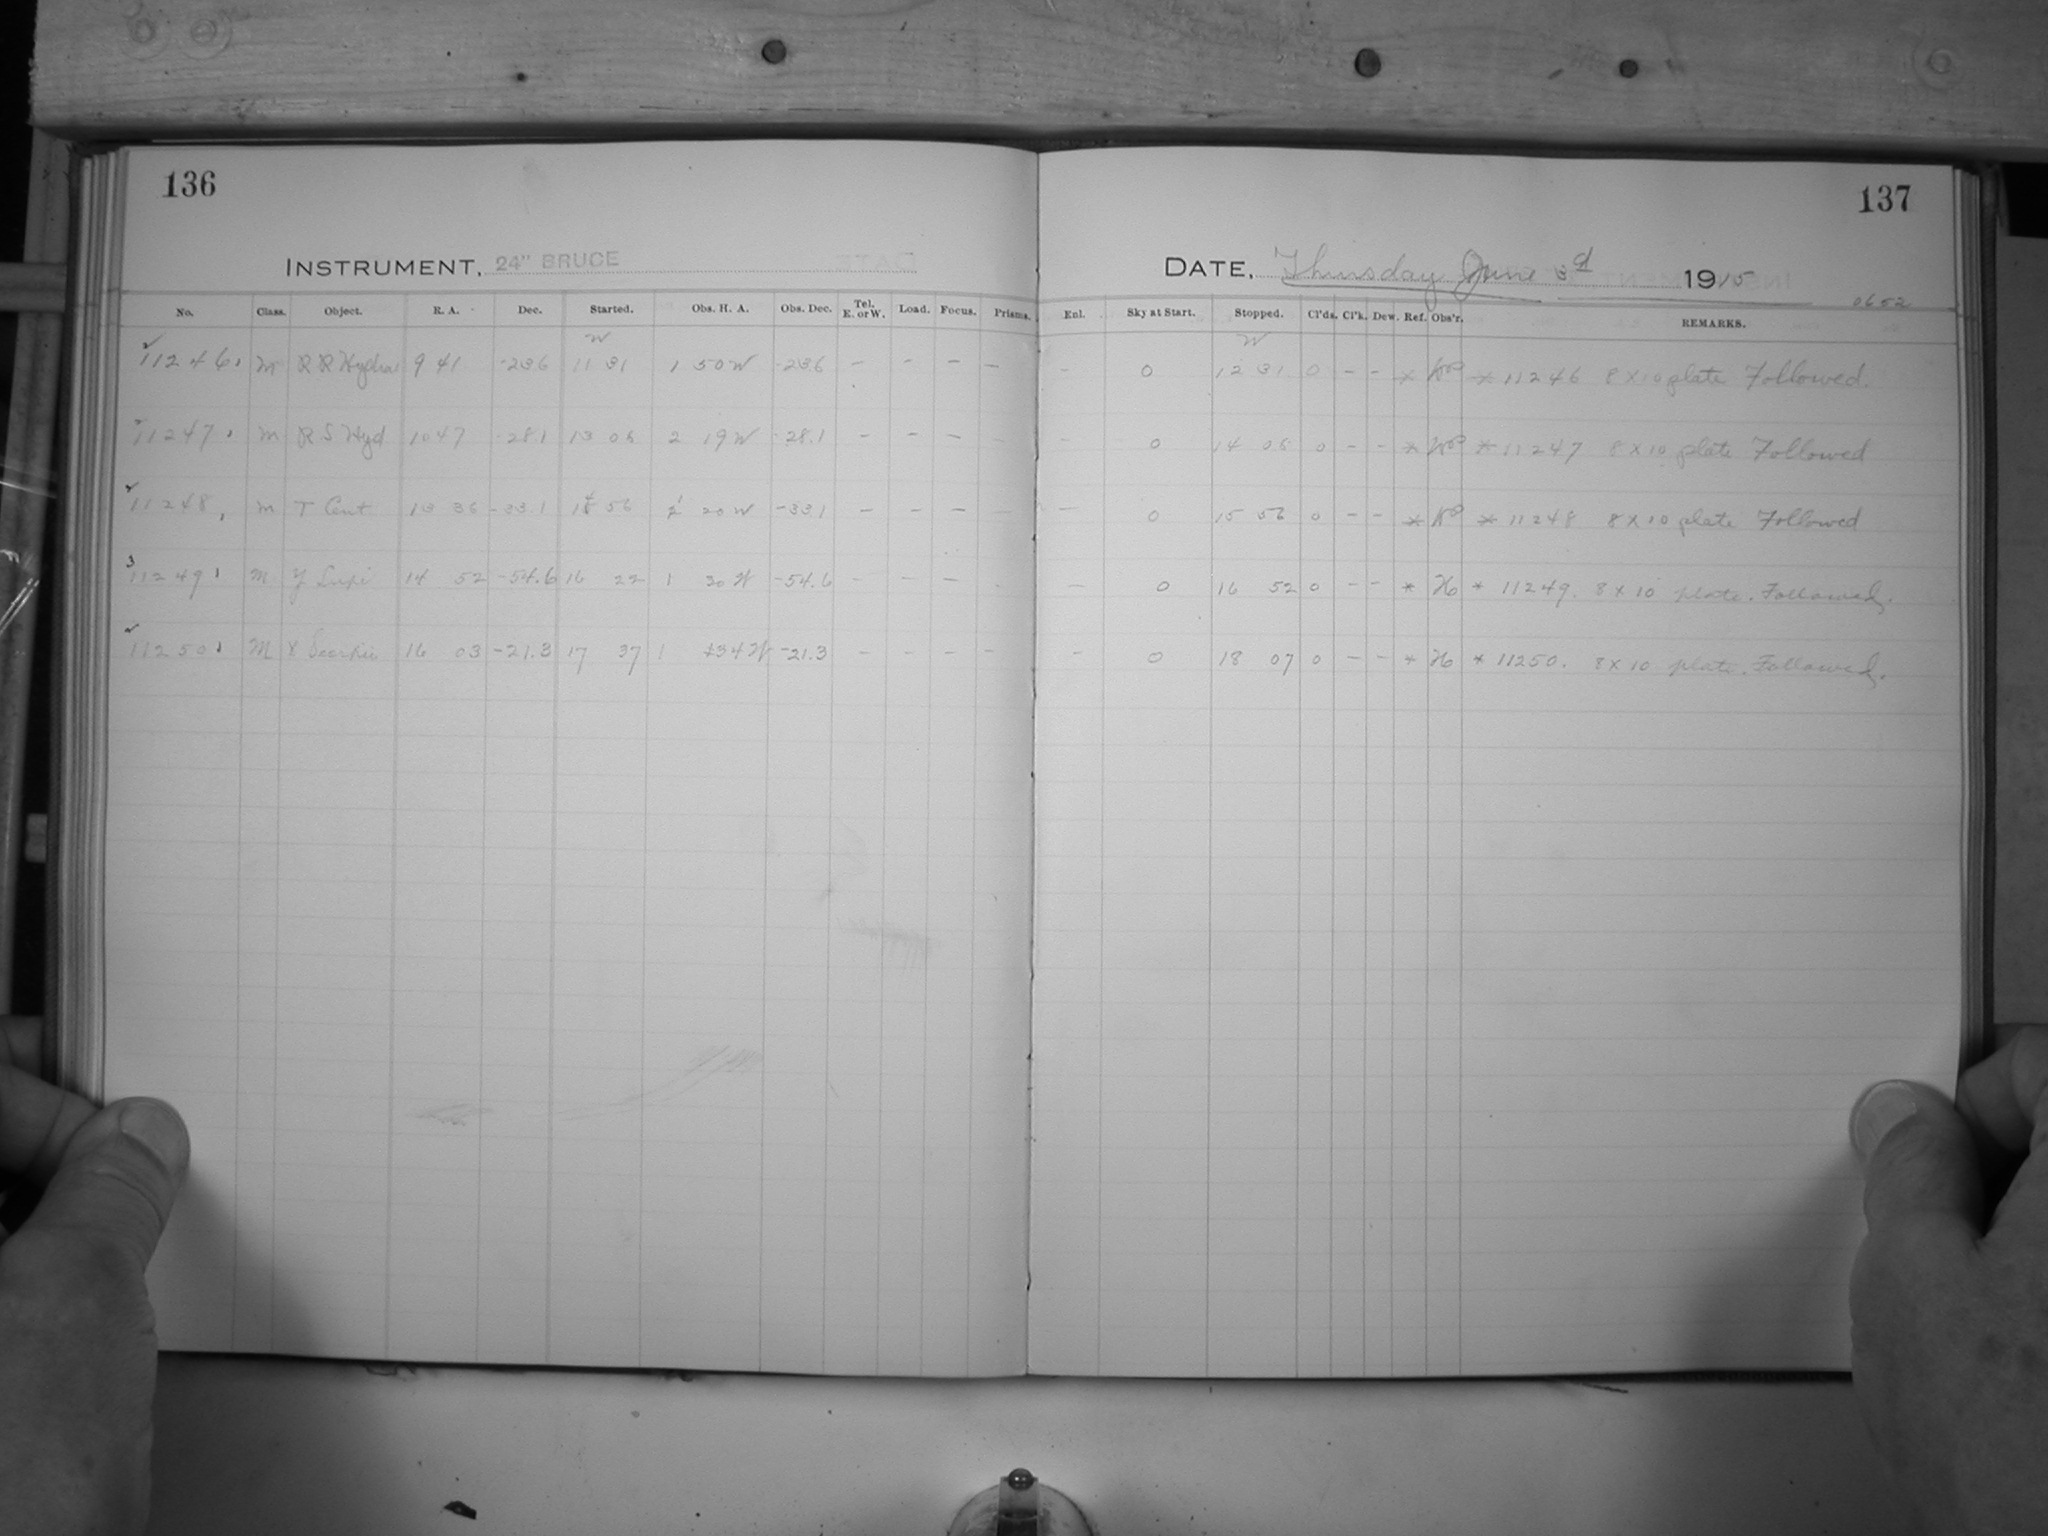 136
INSTRUMENT, 24" BRUCE
No. Class. Object. R. A. Dec. Started. Obs. H. A. Obs. Dec. Tel. E. or W. Load. Focus. Prisms.
W
11246 M R R Hydra 9 41 -23.6 11 31 1 50 W -23.6 - - - -
11247 M R S Hyd 10 47 -28.1 13 06 2 19 W -28.1 - - - -
11248 M T Cent 13 36 -33.1 56 20 W -33.1 - - - -
11249 M Y Lupi 14 52 -54.6 16 22 1 30 W -54.6 - - - -
11250 M X Scorpii 16 03 -21.3 17 37 1 34 W -21.3 - - - -
137
DATE, Thursday June 3d 1915
0652
Enl. Sky at Start. Stopped. Cl'ds. Cl'k. Dew. Ref. Obs'r. REMARKS.
W
- 0 12 31 0 - - * * 11246 8 x 10 plate Followed.
- 0 14 06 0 - - * * 11247 8 x 10 plate Followed
- 0 15 56 0 - - * * 11248 8 x 10 plate Followed
- 0 16 52 0 - - * * 11249. 8 x 10 plate. Followed.
- 0 18 07 0 - - * * 11250. 8 x 10 plate. Followed.